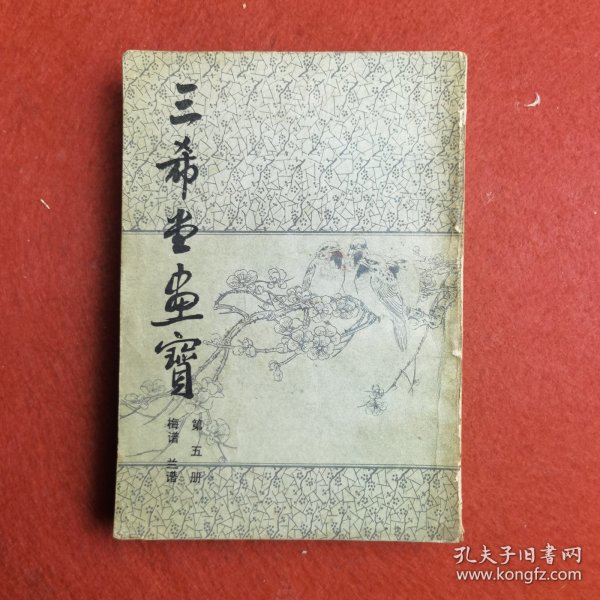 三希堂画寳
第五册
梅谱 兰谱
孔夫子旧书网
www.kongfz.com